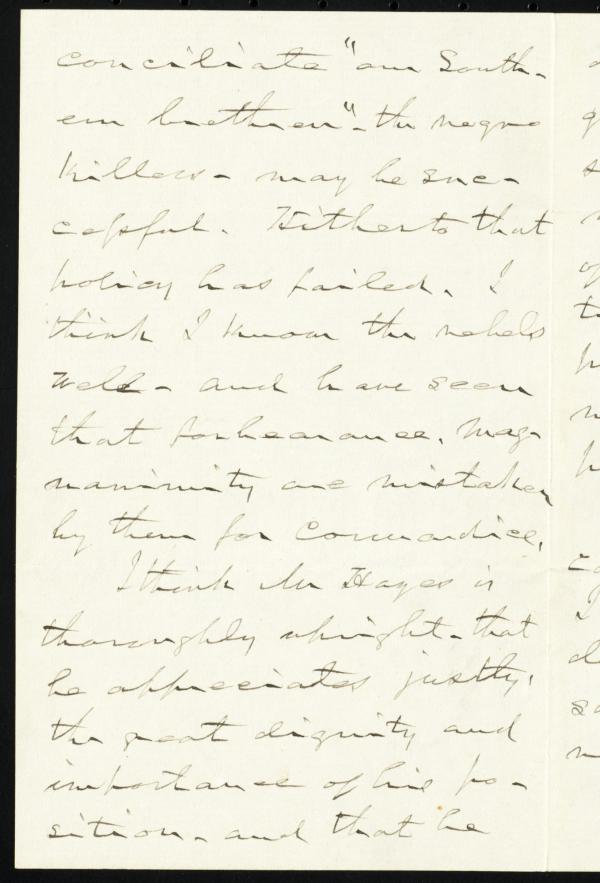 conciliate "our South-
ern brethren" - the negro
killers - may be suc-
cessful. Hitherto that
policy has failed. I
think I know the rebels
well - and have seen
that forbearance, mag-
nanimity are mistaken
by them for cowardice.
I think Mr Hayes is
thoroughly upright - that
he appreciates justly,
the great dignity and
importance of his po-
sition - and that he